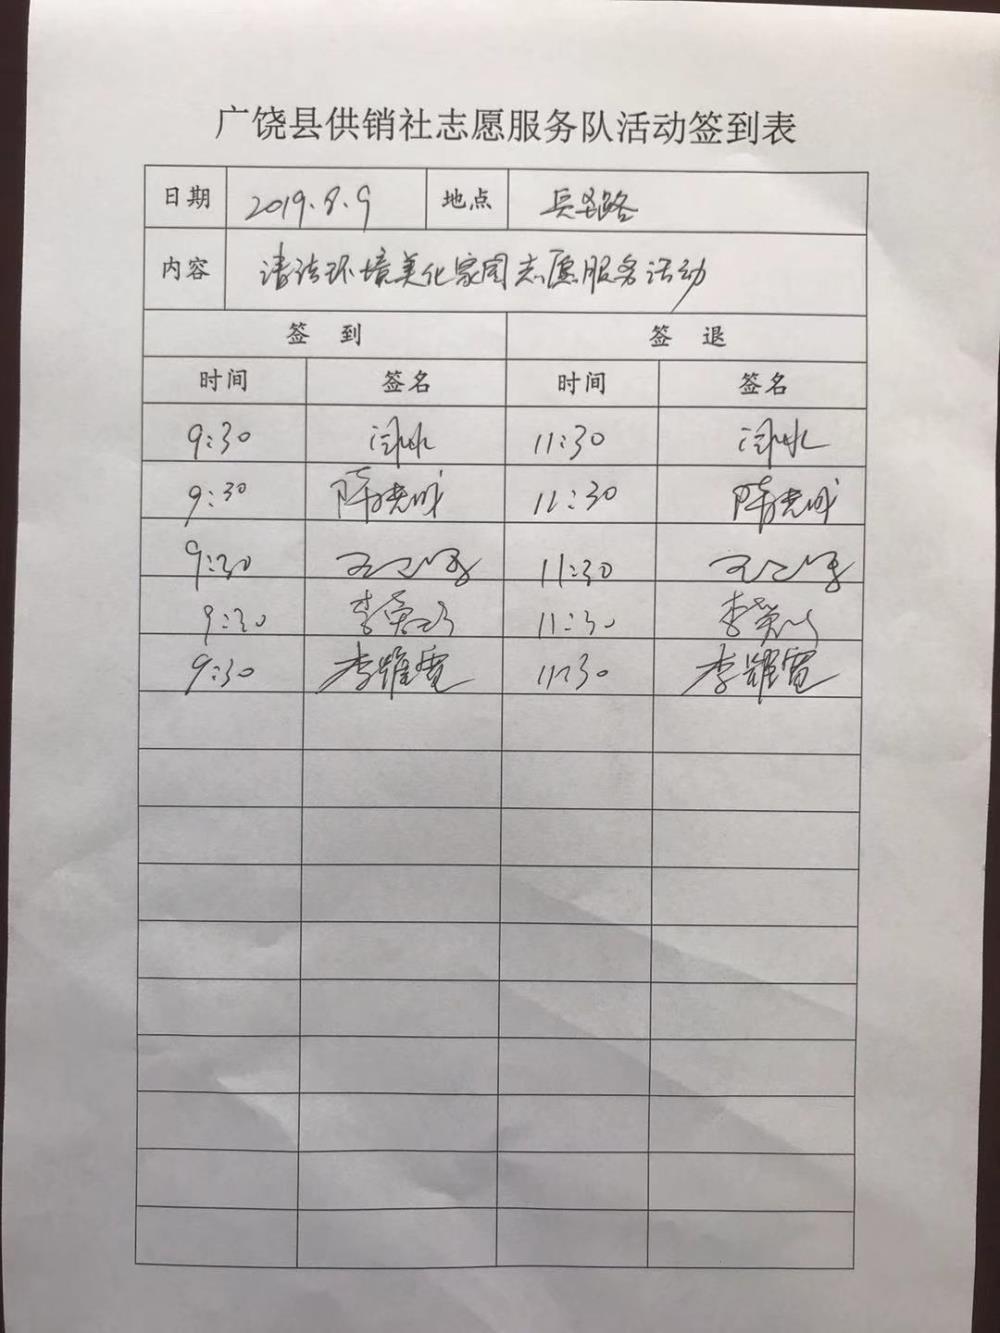 广饶县供销社志愿服务队活动签到表
日期 2019.8.9 地点 兵圣路
内容 清洁环境美化家园志愿服务活动
签到 签退
时间 签名 时间 签名
9:30 11:30
9:30 11:30
9:30 11:30
9:30 李 11:30 李
9:30 李耀 11:30 李耀